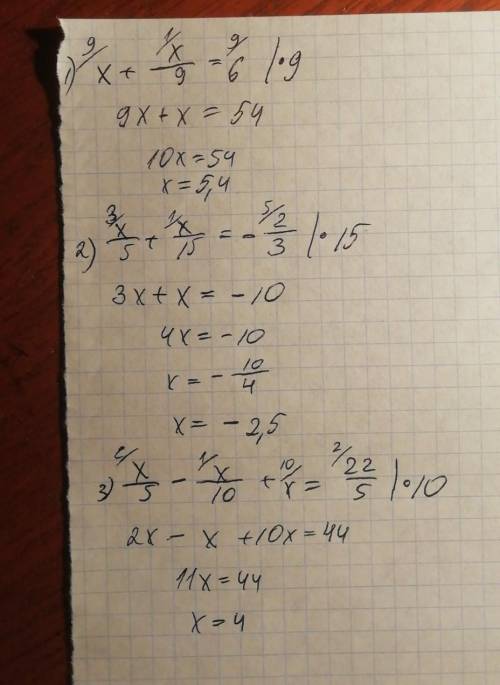 1) ⁹/x + ¹/x/9 = ⁹/6 | · 9
9x + x = 54
10x = 54
x = 5,4
2) ³/x/5 + ¹/x/15 = - ⁵/2/3 | · 15
3x + x = -10
4x = -10
x = - 10/4
x = - 2,5
3) ²/x/5 - ¹/x/10 + ¹⁰/x = ²/22/5 | · 10
2x - x + 10x = 44
11x = 44
x = 4